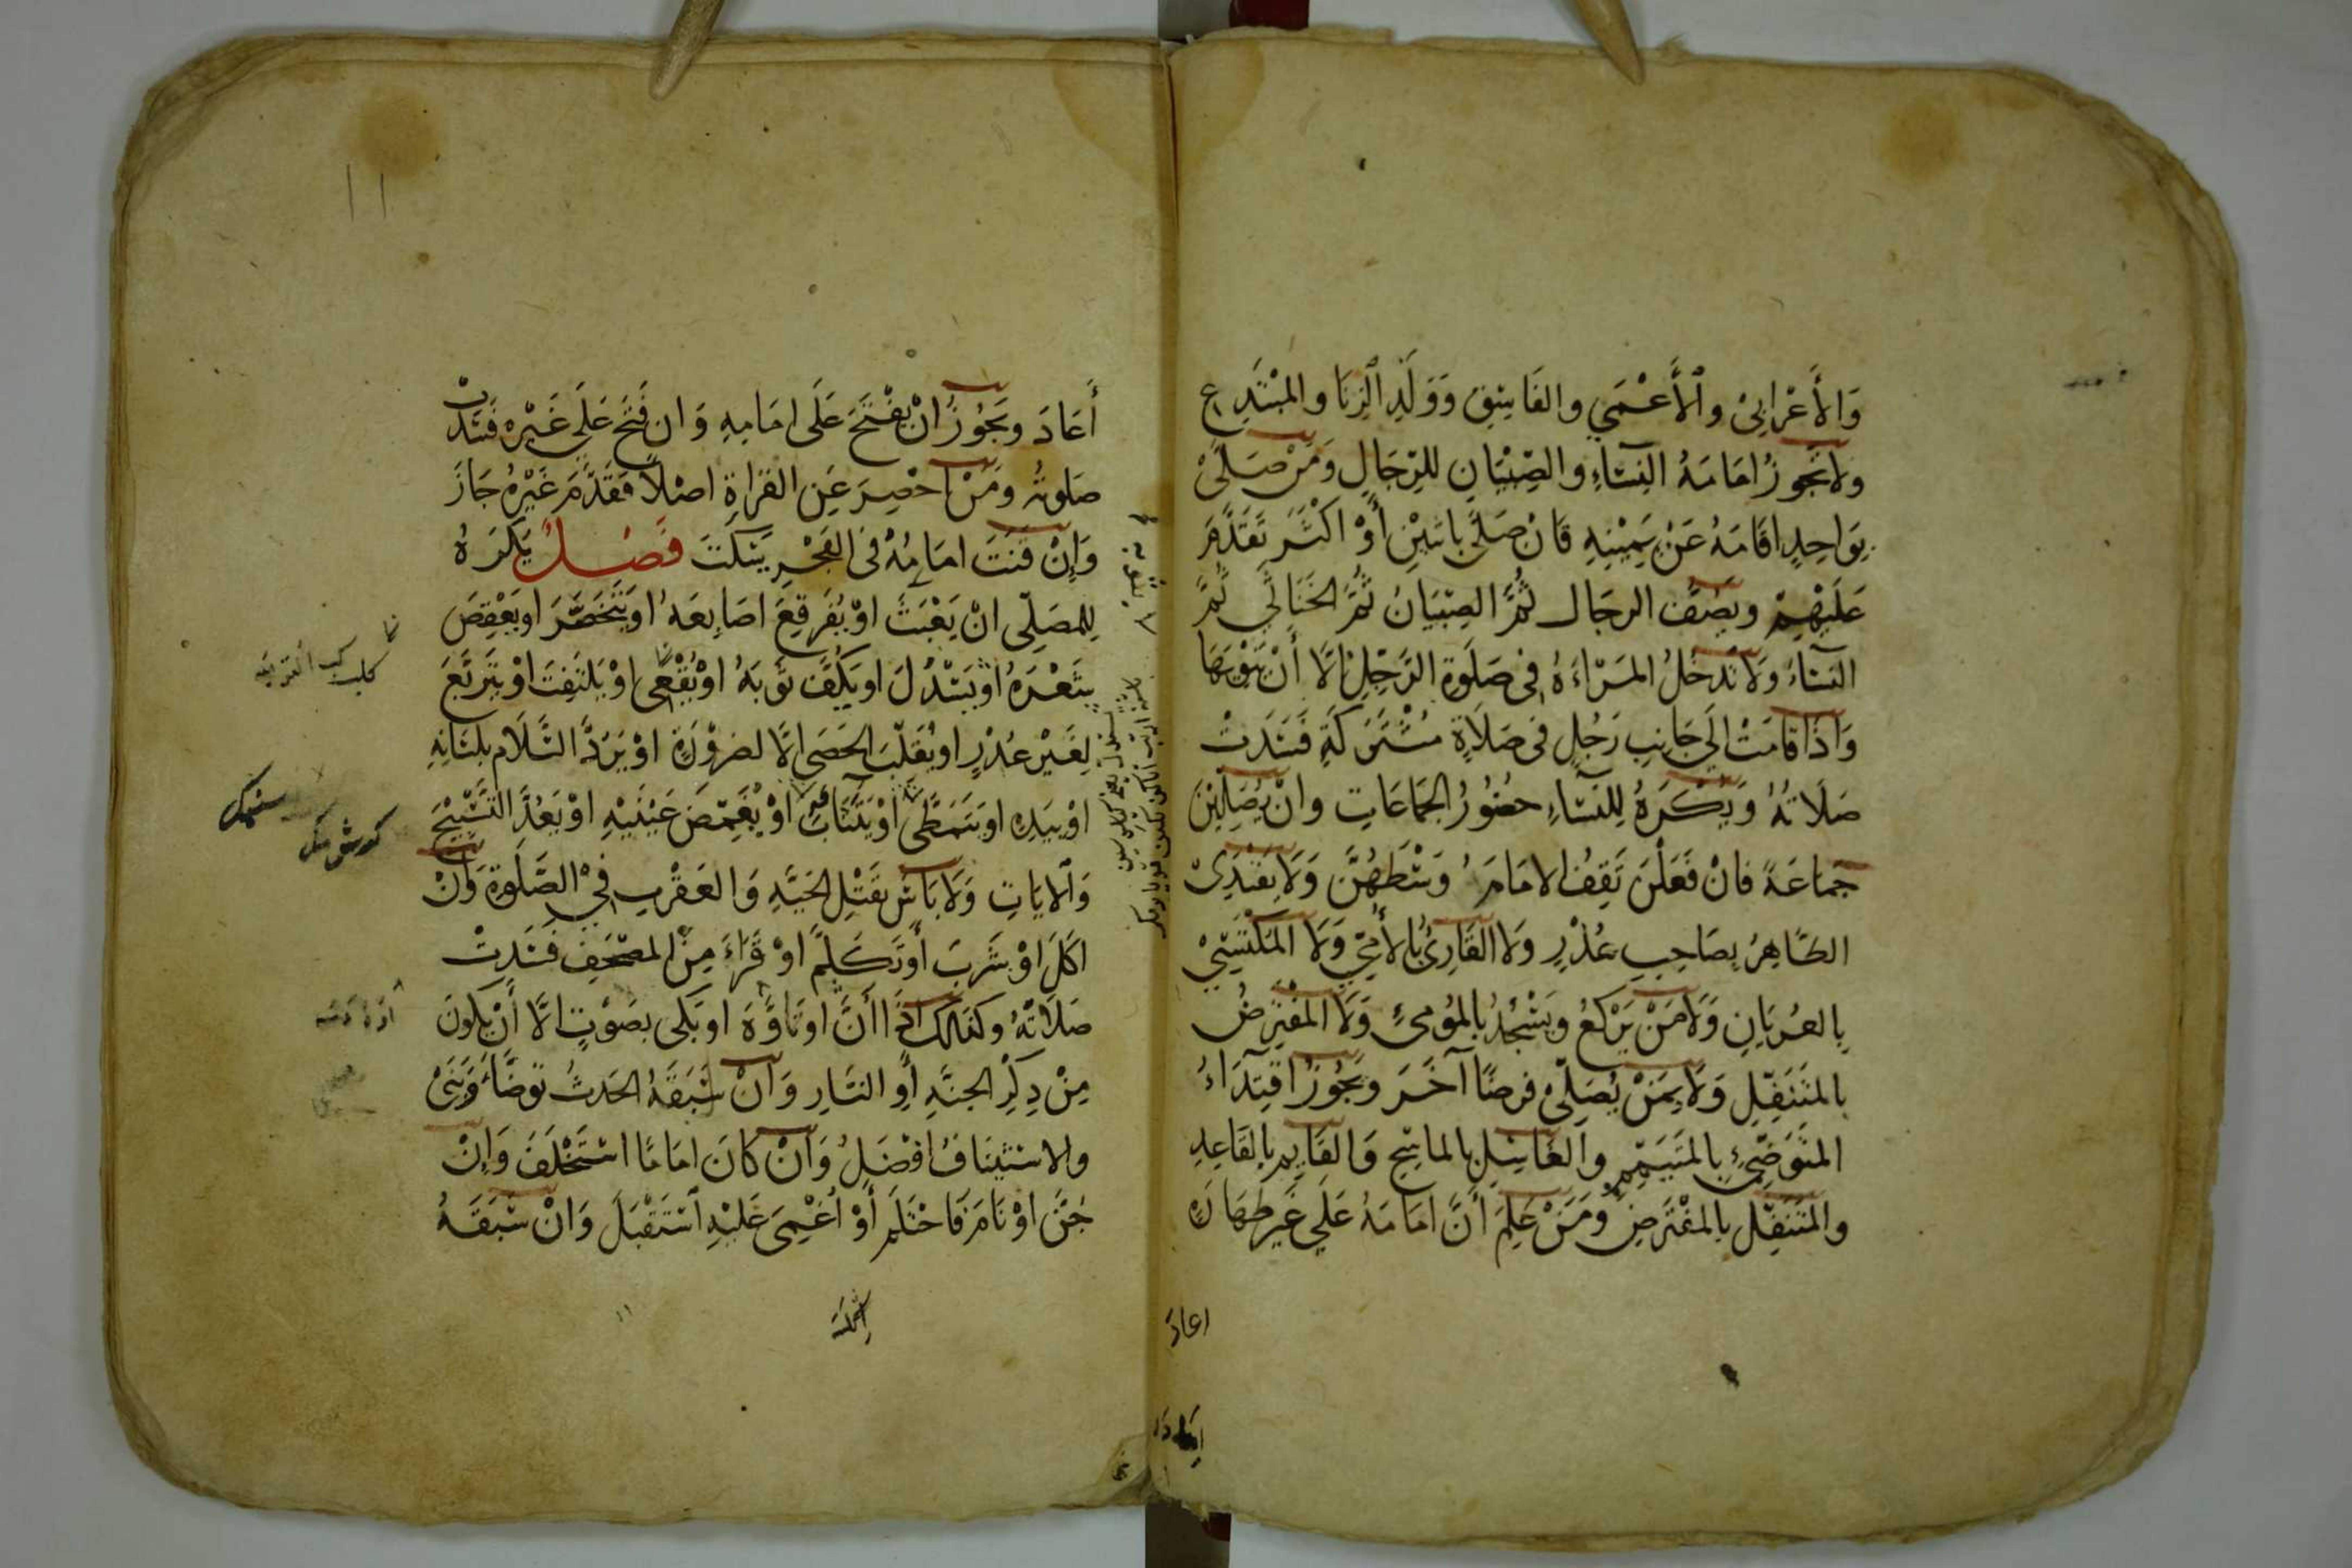 وَالأَعْرَابِيْ وٱلأَعْمَي والفَاسِقِ وَوَلَدِ الزِنَا والمُبْتَدِعِ
ولَا تَجُوزُ اِمَامَةُ النِسَاءِ والصِبْيَانِ لِلرِجَالِ وَمَنْ صَلَّىْ
بِوَاحِدٍ اقَامَهُ عَنْ يَمِيْنِهِ فَانْ صَلَّى بِاثنَيْنِ أَوْ اكْثَرَ تَقَدَّمَ
عَلَيْهِمْ ويَصُفُّ الرجَال ثُمَّ الصِبْيَانُ ثُمَّ الخَنَاثَي ثُمَّ
النسَاءُ وَلَا تَدْخُلُ المَرْاءَةُ فِي صَلَوةِ الرَّجُلِ اِلَّا أَنْ يَنْوِيَهَا
وَاِذَا قَامَتْ اِلَي جَانِبِ رَجُلٍ في صَلَاةٍ مُشْتَرَكَةٍ فَسَدَتْ
صَلَاتُهُ وَيُكْرَهُ لِلنِسَاءِ حضُورُ الجَمَاعَاتِ وانْ يُصَلِيْنَ
جَمَاعَةً فانْ فَعَلْنَ تَقِفُ الامَامَةُ وَسْطَهُنَّ وَلَا يَقْتَدِيْ
الطَّاهِرُ بِصَاحِبِ عُذْرٍ ولَا القَارِئُ بِالأُمِّيِّ وَلَا المُكْتَسِيْ
بِالعُريَانِ وَلَا مَنْ يَرْكَعُ ويَسْجُدُ بِالمُوْمِئِ وَلَا المُفْتَرِضُ
بالمُتَنَفِّلِ وَلَا بِمَنْ يُصَلِّيْ فرضًا آخَرَ ويَجُوزُ اقْتِدَاءُ
المُتَوَضِّئِ بِالمُتَيَمِّمِ والغَاسِلِ بالماسِحِ وَالقَايِمِ بِالقَاعِدِ
والمُتَنَفِّلِ بِالمفْتَرِضِ وَمَنْ عَلِمَ أَنَّ امَامَهُ عَلَي غَيرِ طَهَارَةٍ
اعاد
أَعَادَ ويَجُوزُ انْ يَفْتَحَ عَلَى امَامِهِ وَان فَتَحَ عَلَى غَيْرِهِ فَسَدَتْ
صَلوتُهُ ومَنْ احصِرَ عَنِ القرَاةِ اصْلًا فَقَدَّمَ غَيْرَهُ جَازَ
وَإِنْ قَنَتَ امَامُهُ فى الفَجْرِ يَسْكُتَ فَصْلٌ يَكرَهُ
لِلمصَلّى انْ يَعْبَثَ اوْ يُفَرقِعَ اصَابِعَهُ او يَتَخَصَّرَ او يَعْقِصَ
شَعْرَهُ اوْ يَسْدُلَ او يَكُفَّ ثَوبَهُ اوْ يُقْعِىَ اوْ يَلتَفِتَ اوْ يَتَرَبَّعَ
لِغَيْرِ عُذْرٍ او يُقَلِّبَ الحَصَى الَّا لضرُوْرَةٍ اوْ يَرُدَّ السَّلَامَ بِلسَانِهِ
اوْ بِيَدِهِ او يَتَمَطَّى اوْ يَتَثَاَبَ اوْ يُغَمِّضَ عَيْنَيْهِ اوْ يَعُدَّ التَّسْبِيْحَ
وَٱلايَاتِ وَلَا بَاسَ بقَتْلِ الحَيَّةِ وَالعَقْرَبِ فِيْ الصَّلَوةِ وَانْ
اكَلَ اوْ شَرِبَ أَو تَكَلَّمَ اوْ قَرَاءَ مِنْ المصْحَفِ فَسَدَتْ
صَلَاتُهُ وكَذَلِكَ اذَا انَّ او تَاوَّهَ او بَكَى بصَوْتٍ الَّا أَنْ يَكونَ
مِنْ ذِكْرِ الجنَّةِ أَوِ النَّارِ وَانْ سَبَقَهُ الحَدثُ تَوضَّاءَ وَبَنَىْ
والاسْتِينَافُ افْضَلُ وَانْ كَانَ امَامًا اسْتَخْلَفَ وَإِنْ
جُنَّ اوْ نَامَ فَاحْتَلَمَ أَوْ اُغْمِىَ عَلَيْهِ ٱسْتَقْبَلَ وَانْ سَبَقَهُ
١١